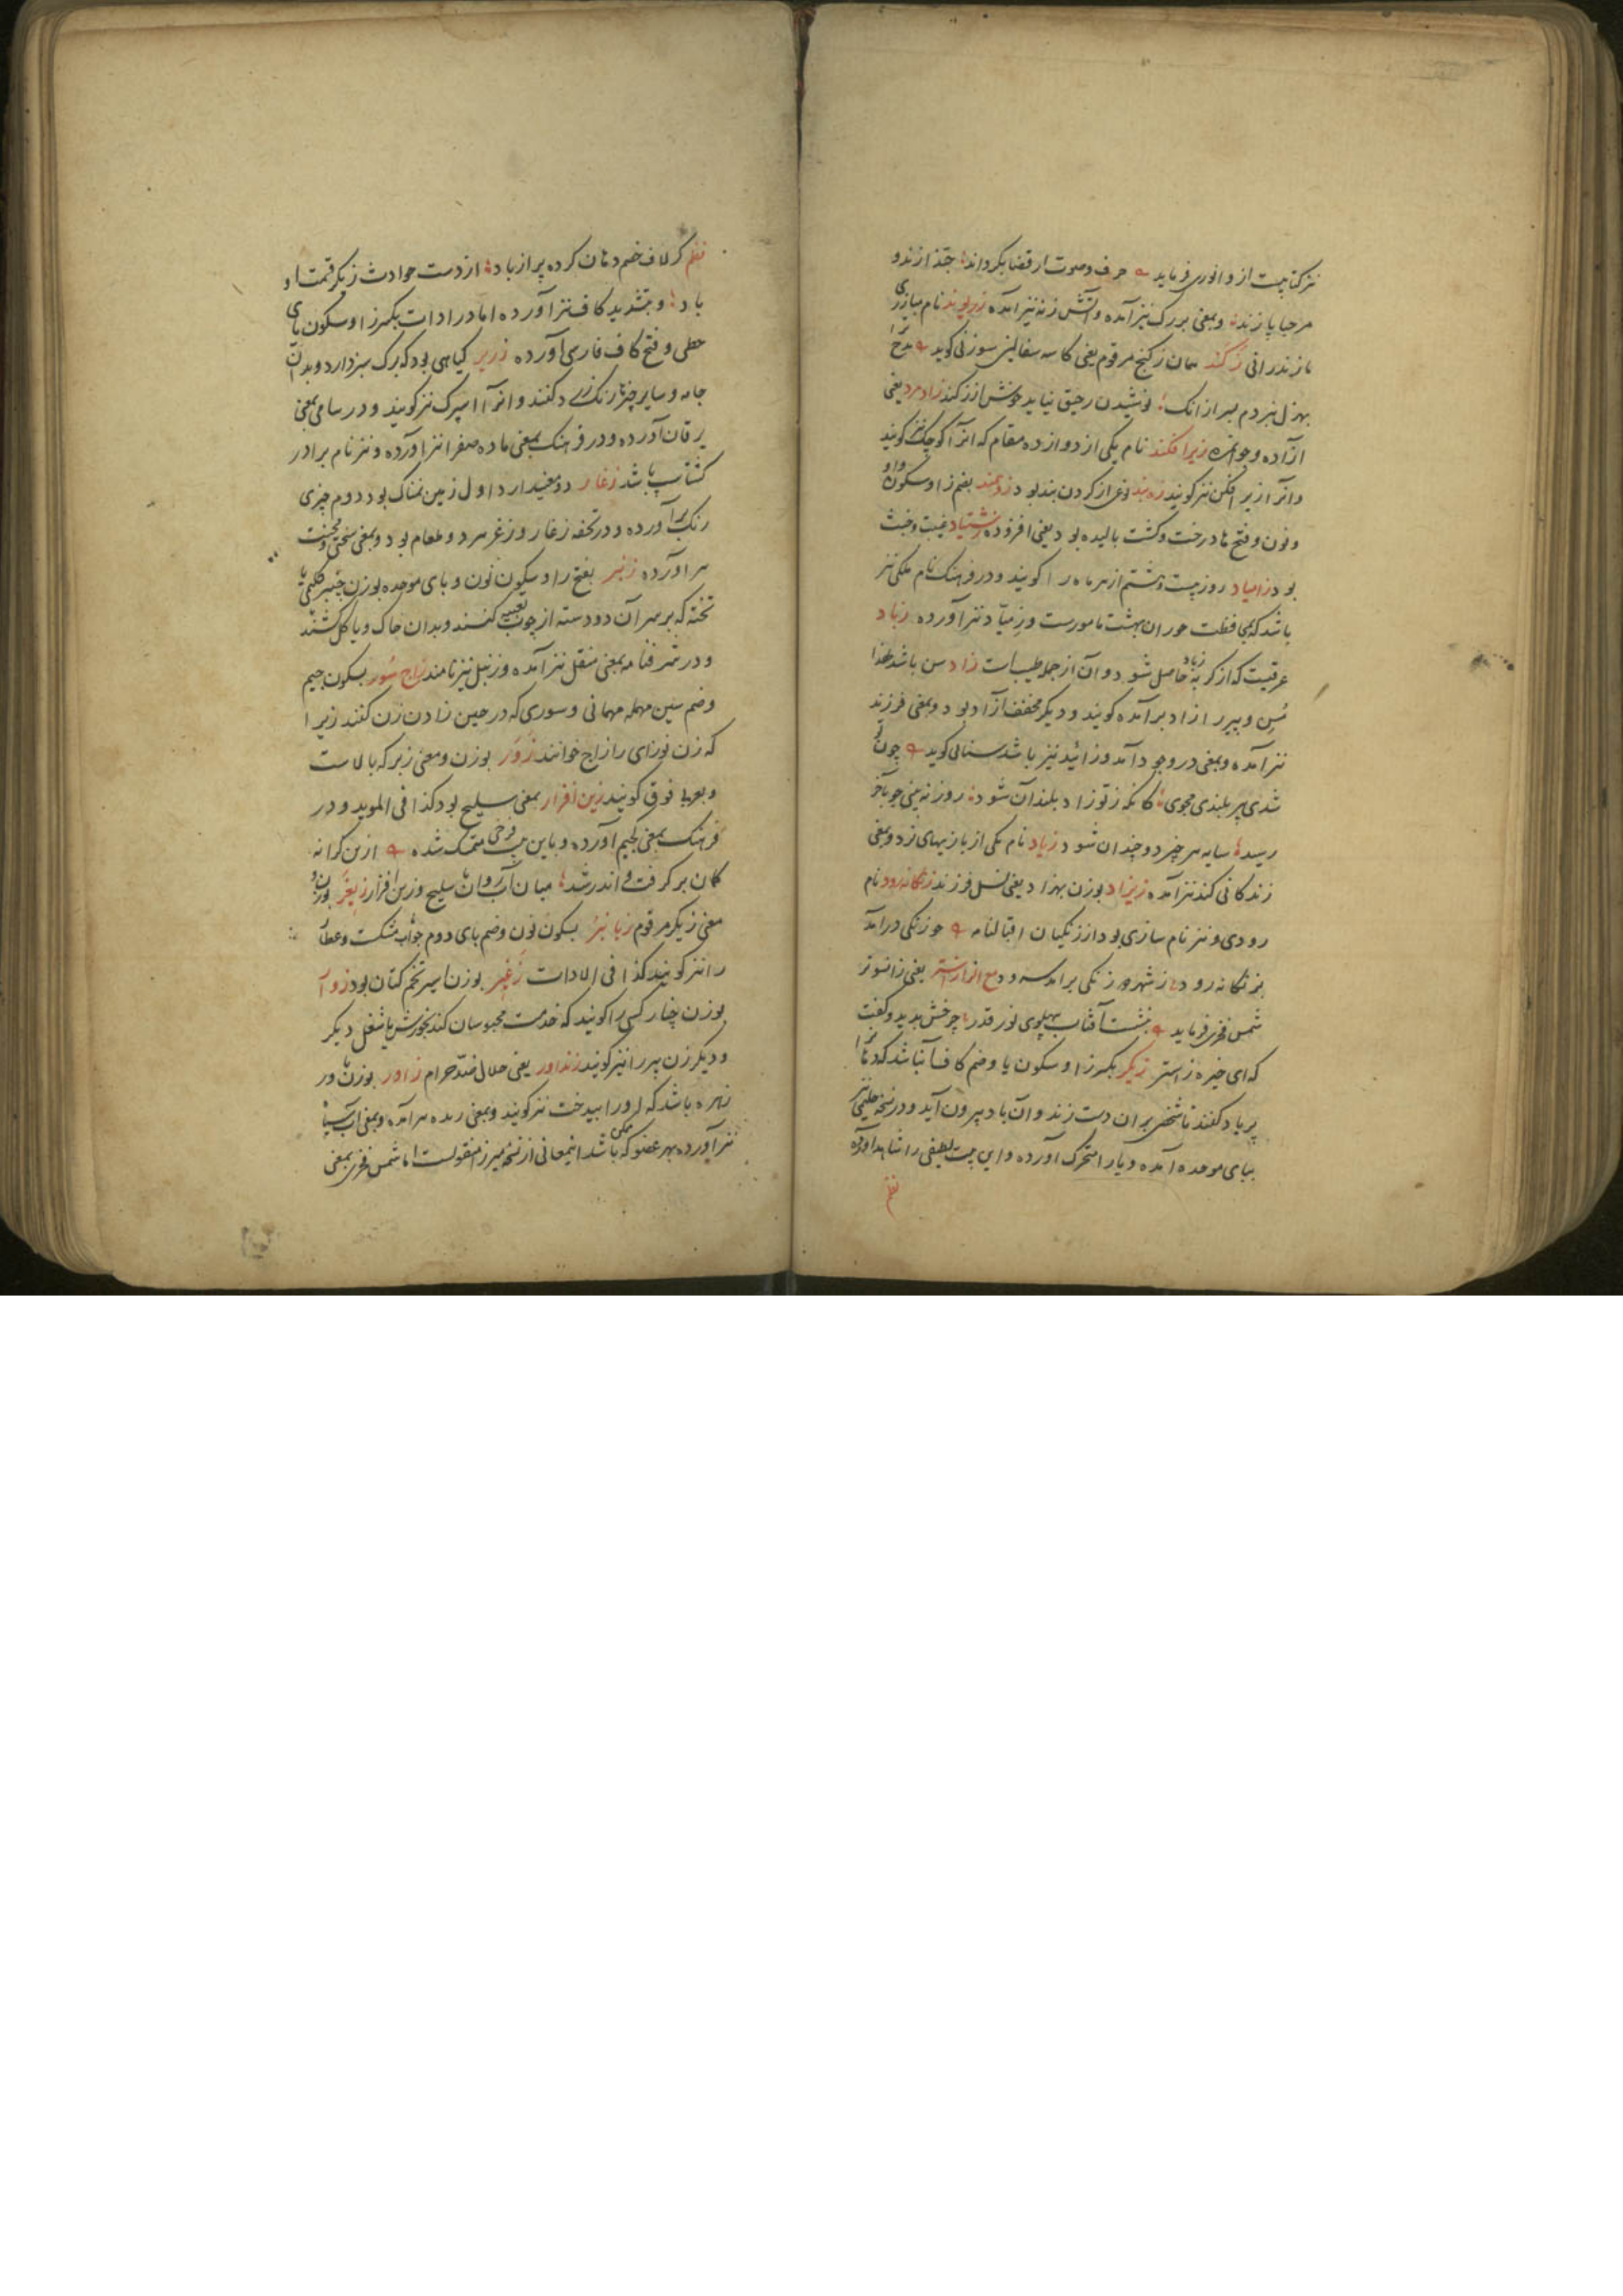 نیز کتابیست از و انوری فرماید حرف و صوت ار قضا بگرداند حبّذا زند و
مرحبا پازند و بمعنی بزرگ نیز آمده و آتش زنه نیز آمده زریوند نام مبارزی
مازندرانی زکند همان زکنج مرقوم یعنی کاسه سفالین سوزنی کوید مدح ترا
بهزل نبردم بسر ازانک نوشیدن رحیق نیاید خوش از زکند زادمرد یعنی
ازاده و جوانمرد زیرافکند نام یکی از دوازده مقام که انرا کوچک نیز کویند
وانرا زیر افکن نیز کویند زوبند بود زومند بضم زا و سکون واو
و نون و فتح ها درخت و کشت بالیده بود یعنی افزوده زشتیاد غیبت و خبث
بود زامیاد روز بیست و هشتم از هر ماه را کویند و در فرهنک نام ملکی نیز
باشد که بمحافظت حوران بهشت مامورست و زمیاد نیز آورده زباد
عرقیست که از کربه زباد حاصل شود و آن از جمله طیبات زاد سن باشد لهذا
مُسِن و پیر را زاد برآمده کویند و دیکر مخفف آزاد بود و بمعنی فرزند
نیز آمده و بمعنی در وجود آمد و زائید نیز باشد سنائی کوید چون تو
شدی پیر بلندی مجوی کانکه ز تو زاد بلند آن شود روز نه بینی چو بآخر
رسد سایه هر چیز دو چندان شود زیاد نام یکی از بازیهای نرد و بمعنی
زندکانی کند نیز آمده زیزاد بوزن بهزاد یعنی نسل فرزند زنکانه رود نام
رودی و نیز نام سازی بود از زنکیان اقبالنامه چو زنکی درآمد
بزنکانه رود ز شهرود زنکی برآمد سرود مع الراء زاستر یعنی زانسوتر
شمس فخری فرماید بنشست آفتاب بپهلوی نور قدر چرخش بدید و کفت
که ای خیره زاستر زیکر بکسر زا و سکون یا و ضم کاف آنباشد که دهانرا
پر باد کنند تا شخصی بر ان دست زند و آن باد بیرون آید و در نسخه حلیمی نیز
ببای موحده آمده و یا را متحرک آورده و این بیت لطیفی را شاهد آورده
نظم
نظم کر لاف خصم دهان کرده پر از باد از دست حوادث زیکر قسمت او
باد و بتشدید کاف نیز آورده اما در ادات بکسر زا و سکون یای
حطی و فتح کاف فارسی آورده زریر کیاهی بود که برک سبز دارد و بدان
جامه و سایر چیزها رنک زرد کنند و انرا اسپرک نیز کویند و در سامی بمعنی
یرقان آورده و در فرهنک بمعنی ماده صفرا نیز آورده و نیز نام برادر
کشتاسپ باشد زغار دو معنی دارد اول زمین نمناک بود دوم چیزی
رنک برآورده و در تحفه زغار و زغر سرد و طعام بود و بمعنی سختی و محنت
هم آورده زنبر بفتح زا و سکون نون و بای موحده بوزن چنبر
تخته که بر سر آن دو دسته از چوب تعبیه کنند و بدان خاک و یا کل کشند
و در شرفنامه بمعنی منقل نیز آمده و زنبل نیز نامند زاج سُور بسکون جیم
و ضم سین مهمله مهمانی و سوری که در حین زادن زن کنند زیرا
که زن نوزای را زاج خوانند زَوَر بوزن و معنی زبر که بالاست
و بعربی فوق کویند زین افزار بمعنی سلیح بود کذا فی الموید و در
فرهنک بمعنی لجیم آورده و باین بیت فرخی متمسک شده ازین کرانه
کمان بر کرفت و اندر شد میان آب روان با سلیح و زین افزار زبغر بوزن و
معنی زیکر مرقوم زبانبر بسکون نون و ضم بای دوم جواب
را نیز کویند کذا فی الادات زغیر بوزن اسیر تخم کتان بود زوار
بوزن چنار کسی را کویند که خدمت محبوسان کند بخورش یا شغلی دیکر
و دیکر زن پیر را نیز کویند زنداور یعنی حلال ضد حرام زاور بوزن داور
زهره باشد که او را بیدخت نیز کویند و بمعنی رمده هم آمده و بمعنی آب سیاه
نیز آورده بهر عضو که باشد اینمعانی از نسخه میرزا منقولست اما شمس فخری بمعنی